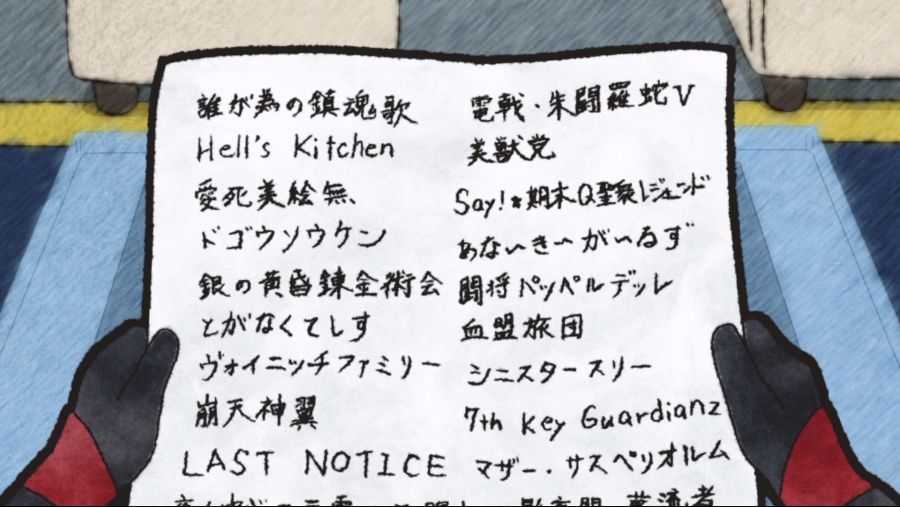 誰が為の鎮魂歌
Hell's Kitchen
愛死美絵無、
ドゴウソウケン
銀の黄昏錬金術会
とがなくてしす
ヴォイニッチファミリー
崩天神翼
LAST NOTICE
電戦・朱闘羅蛇V
美獣党
Say!*期末Q聖襲レジェンド
あないきいがいるず
闘将パッパルデッレ
血盟旅団
シニスタースリー
7th Key Guardianz
マザー・サスペリオルム